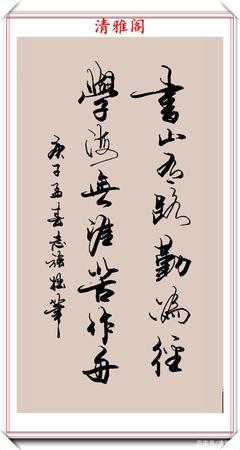 清雅阁
書山有路勤為徑
學海無涯苦作舟
庚子孟春志强拙筆